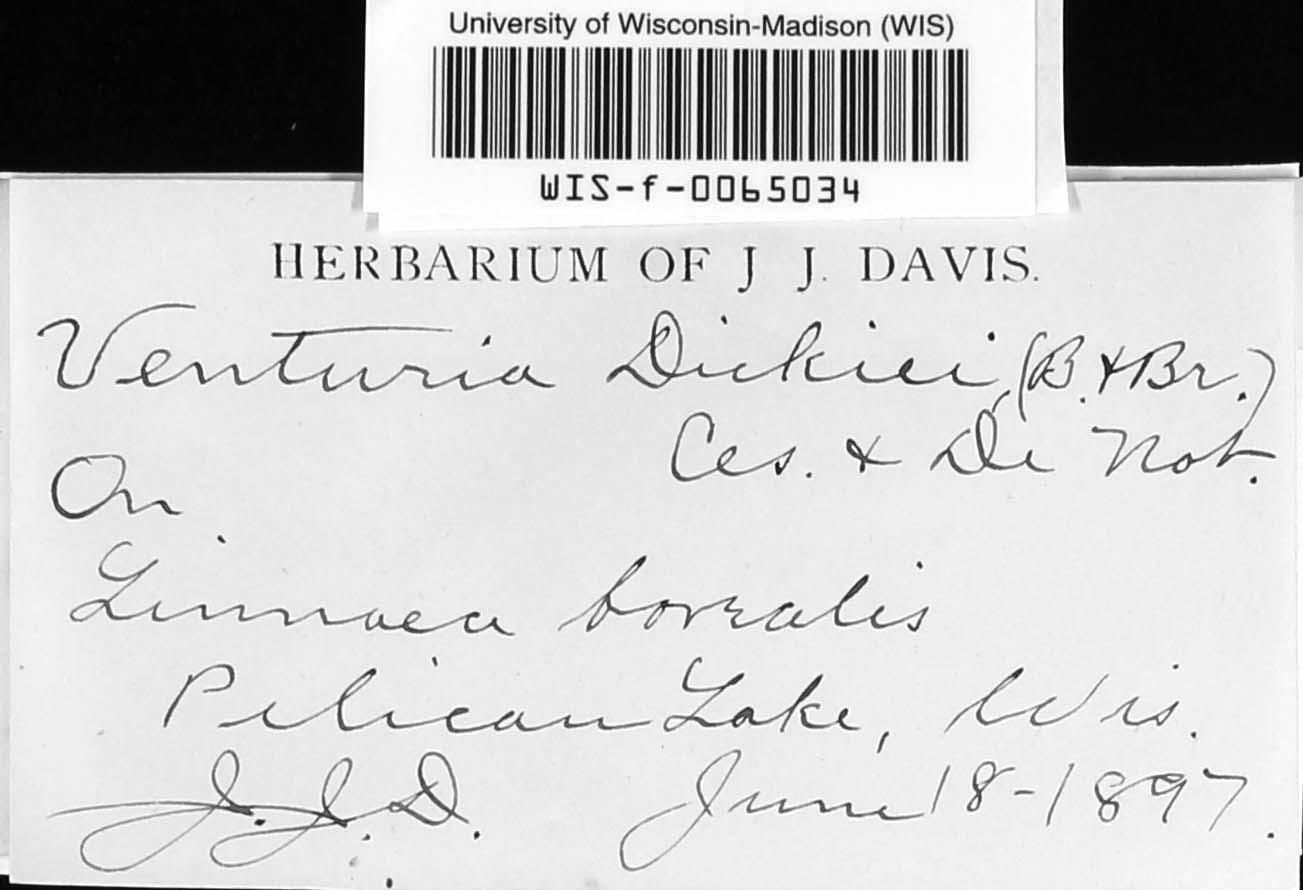 University of Wisconsin-Madison (WIS)
WIS-f-0065034
HERBARIUM OF J J. DAVIS.
Venturia Dickiei (B. & Br.)
Ces. & De Not.
On
Linnaea borealis
Pelican Lake, Wis.
J. J. D. June 18-1897.